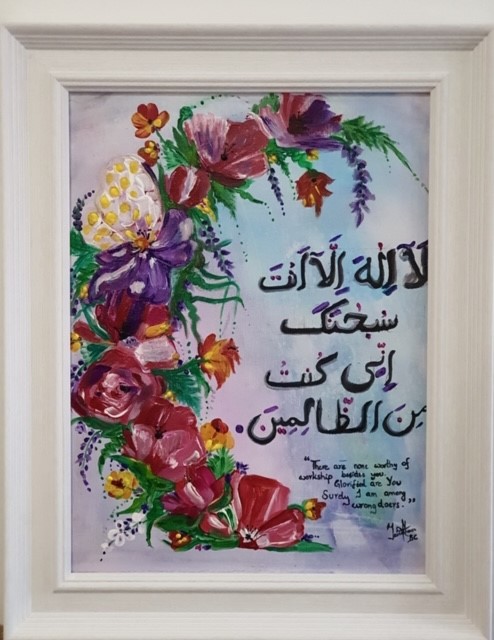 لَآ اِلٰهَ اِلَّآ اَنْتَ
سُبْحٰنَكَ
اِنِّى كُنْتُ
مِنَ الظَّالِمِينَ.
"There are none worthy of
worship besides you.
Glorified are You
Surely I am among
wrongdoers."